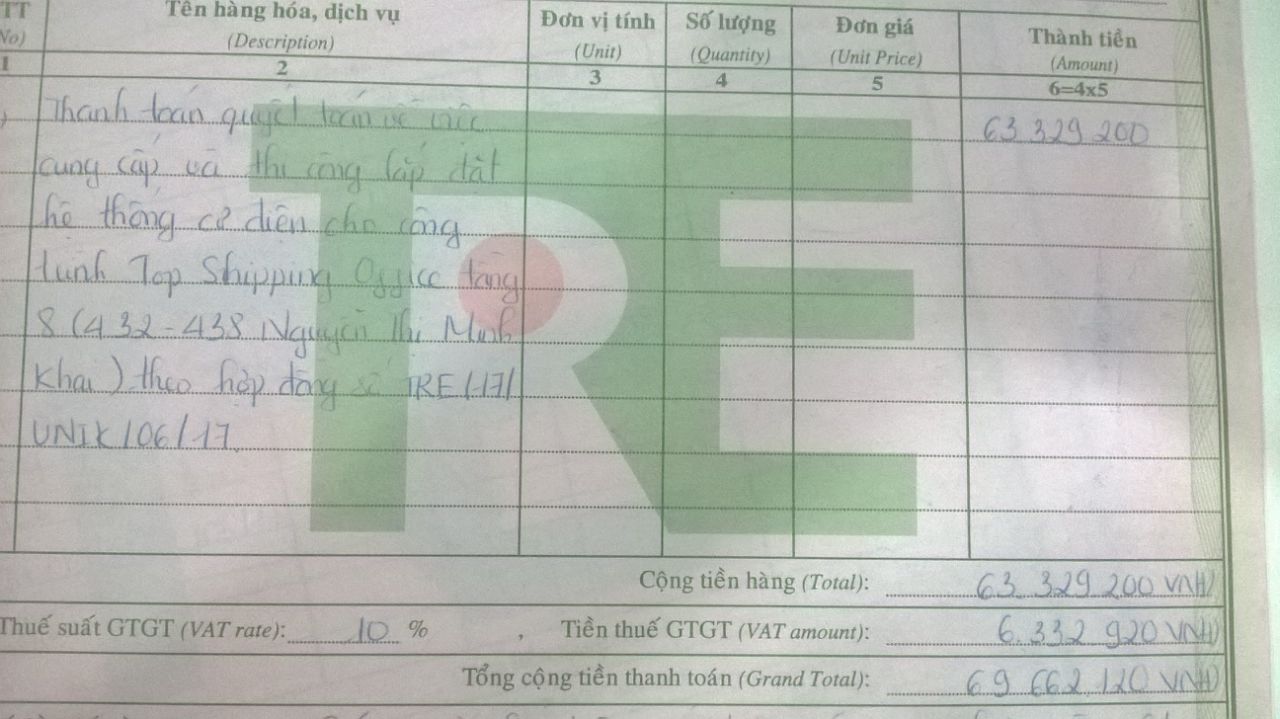 TT Tên hàng hóa, dịch vụ Đơn vị tính Số lượng Đơn giá Thành tiền
No) (Description) (Unit) (Quantity) (Unit Price) (Amount)
1 2 3 4 5 6=4x5
Thanh toán quyết toán về việc 63 329 200
cung cấp và thi công lắp đặt
hệ thống cơ điện cho công
trình Top Shipping Office tầng
8 (432-438 Nguyễn Thị Minh
Khai) theo hợp đồng số TRE/17/
UNIK/06/17
TRE
Cộng tiền hàng (Total): 63 329 200 VNĐ
Thuế suất GTGT (VAT rate): 10 % , Tiền thuế GTGT (VAT amount): 6.332 920 VNĐ
Tổng cộng tiền thanh toán (Grand Total): 69 662 120 VNĐ